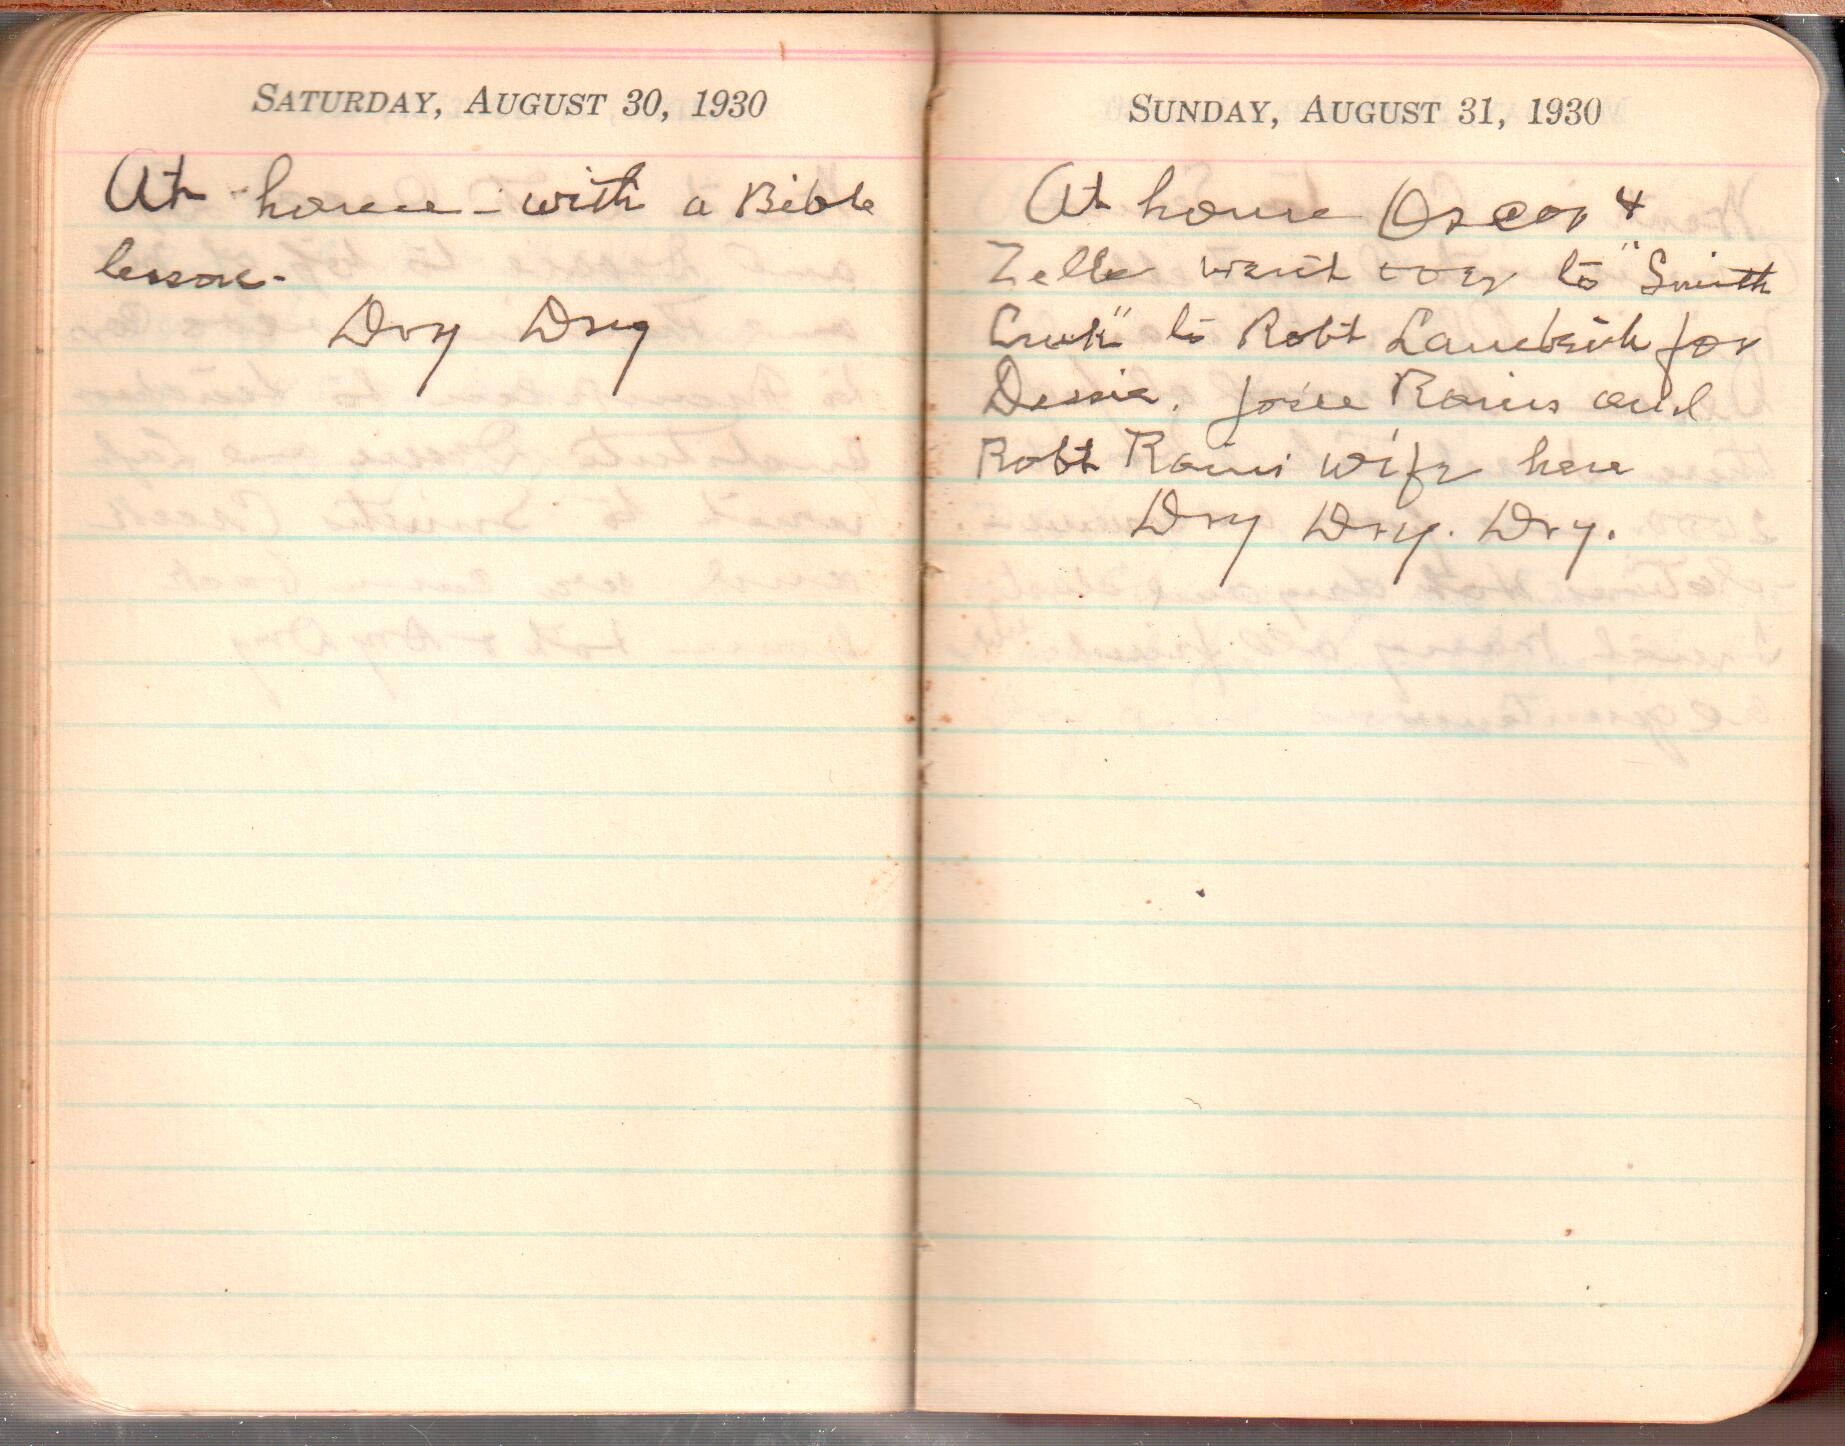 SATURDAY, AUGUST 30, 1930
At home - with a Bible
lesson -
Dry Dry
SUNDAY, AUGUST 31, 1930
At home Oscar &
Zella went over to "Smith
Creek" to Robt for
Dessie. Josie Rains and
Robt Rains wife here
Dry Dry. Dry.